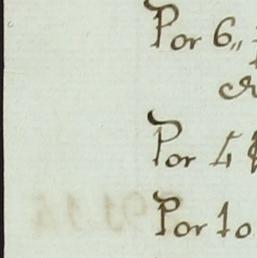 Por 6,,
Por 4
Por 10